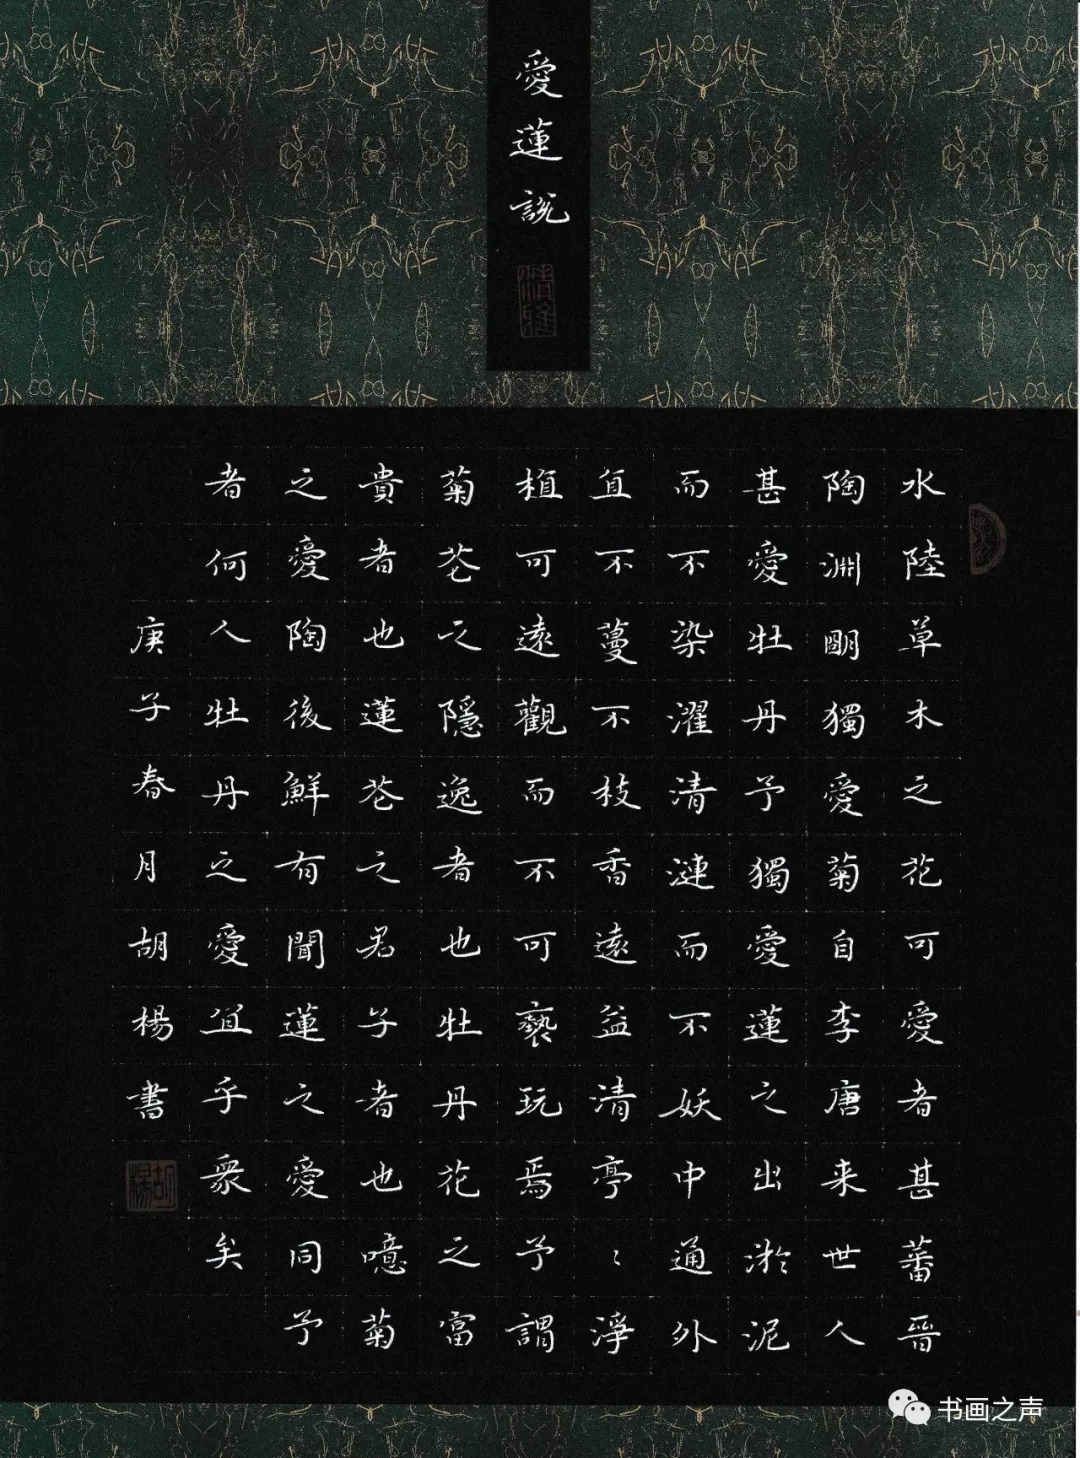 愛蓮説
水陸草木之花可愛者甚蕃晉
陶淵明獨愛菊自李唐来世人
甚愛牡丹予獨愛蓮之出淤泥
而不染濯清漣而不妖中通外
直不蔓不枝香遠益清亭〻淨
植可遠觀而不可褻玩焉予謂
菊花之隱逸者也牡丹花之富
貴者也蓮花之君子者也噫菊
之愛陶後鮮有聞蓮之愛同予
者何人牡丹之愛宜乎衆矣
庚子春月胡楊書
胡楊
书画之声